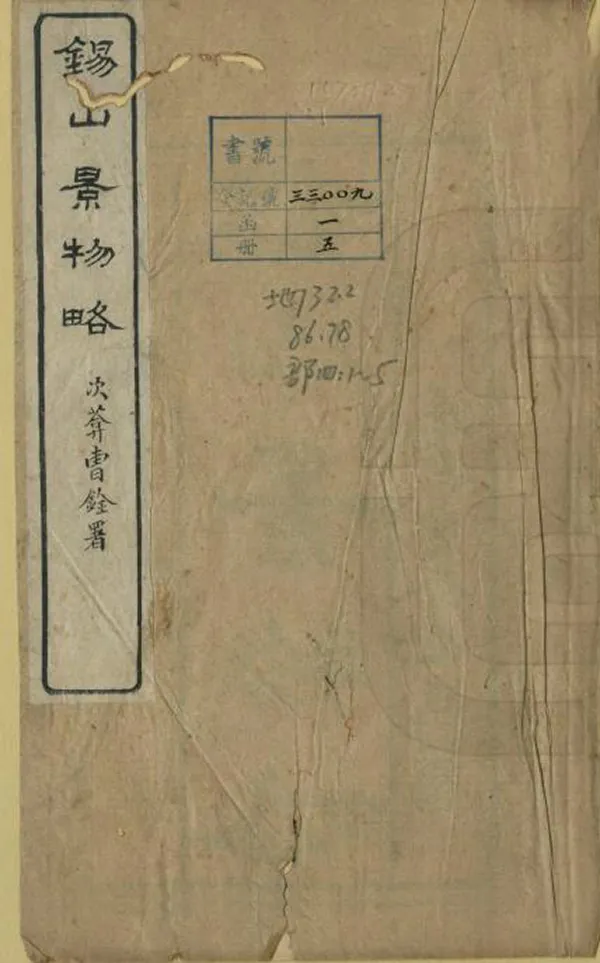 錫山景物略
次莽曹銓署
書號
登記號 三三〇〇九
函 一
冊 五
地732.2
86.78
部四:1~5